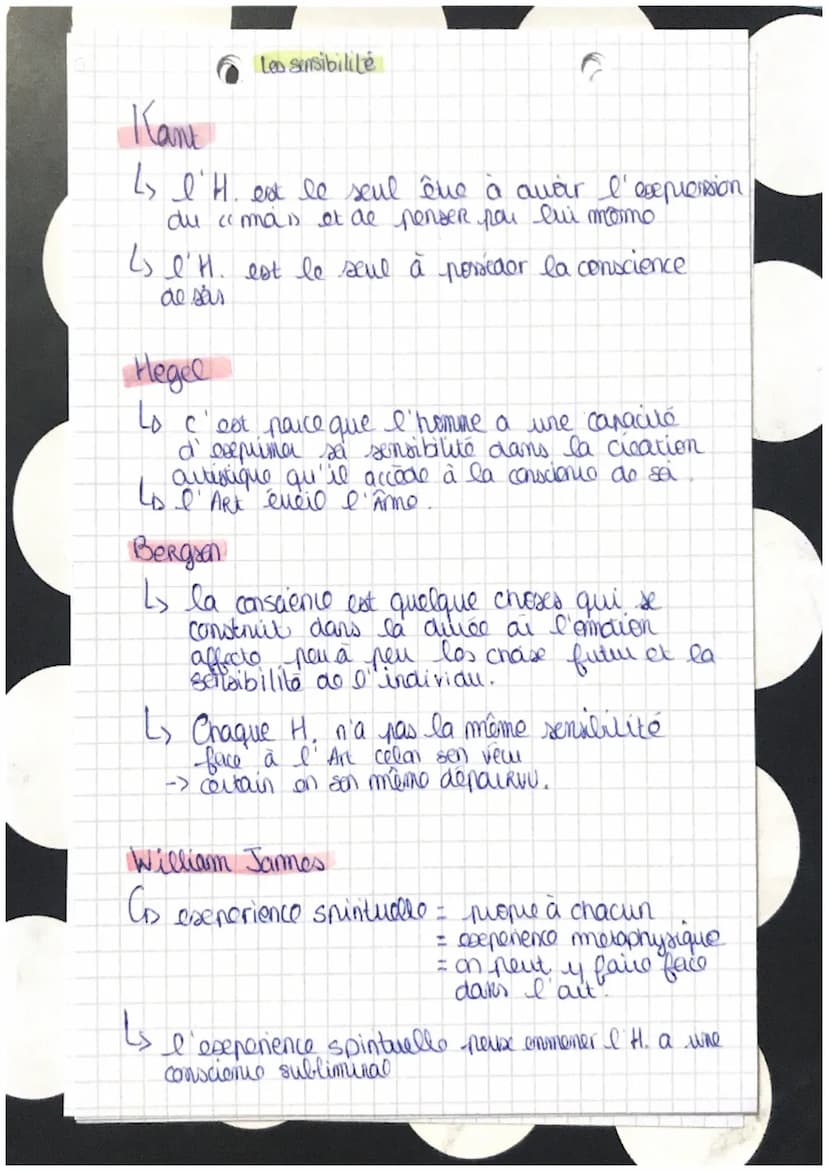 Les sensibilité
Kant
↳ l'H. est le seul être à avoir l'expression
du "moi" et de penser par lui même
↳ l'H. est le seul à posséder la conscience
de soi
Hegel
↳ c'est parce que l'homme a une capacité
d'exprimer sa sensibilité dans la création
artistique qu'il accède à la conscience de soi.
↳ l'Art éveil l'âme.
Bergson
↳ la conscience est quelque choses qui se
construit dans la durée où l'émotion
affecte peu à peu les choix futur et la
sensibilité de l'individu.
↳ Chaque H. n'a pas la même sensibilité
face à l'Art celon son vécu
-> certain en son même dépourvu.
William James
↳ experience spirituelle = propre à chacun
= experience metaphysique
= on peut y faire face
dans l'art.
↳ l'experience spirituelle peux emmener l'H. a une
conscience subliminal